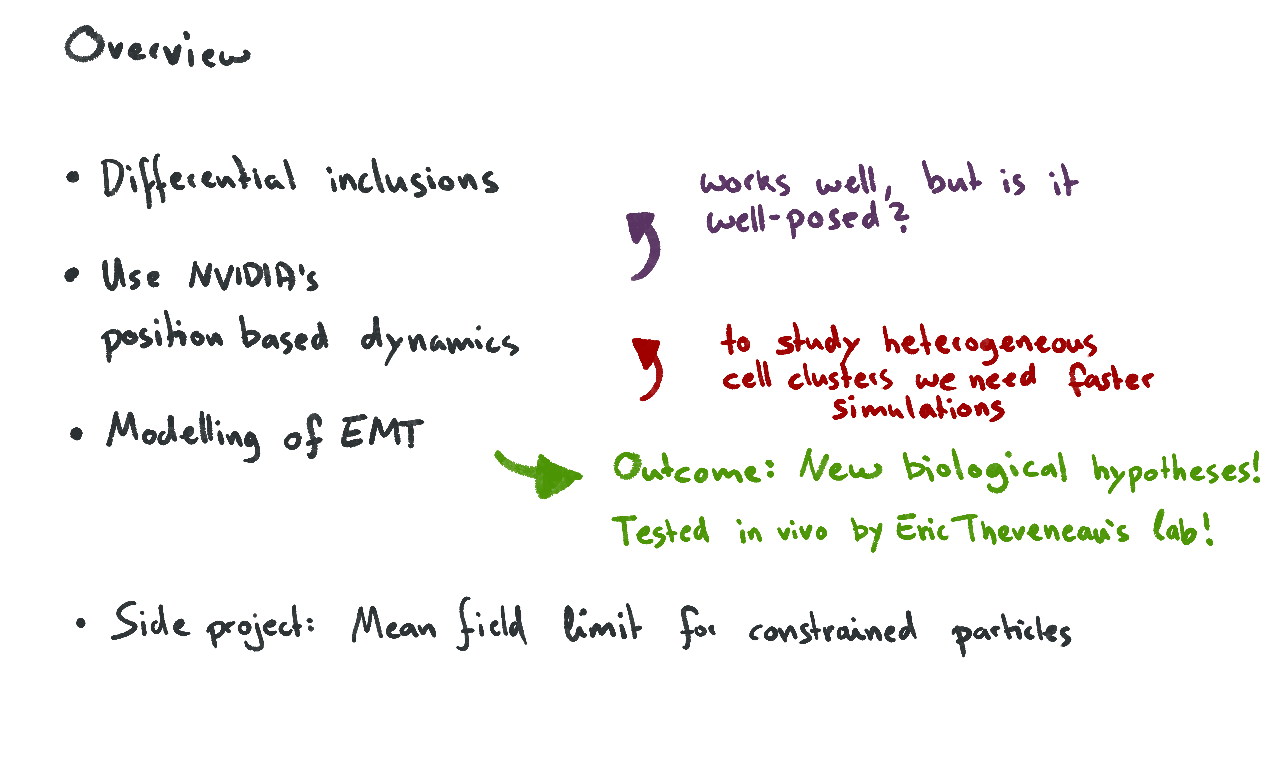 Overview
• Differential inclusions
works well, but is it
well-posed?
• Use NVIDIA's
position based dynamics
to study heterogeneous
cell clusters we need faster
simulations
• Modelling of EMT
Outcome: New biological hypotheses!
Tested in vivo by Eric Theveneau's lab!
• Side project: Mean field limit for constrained particles